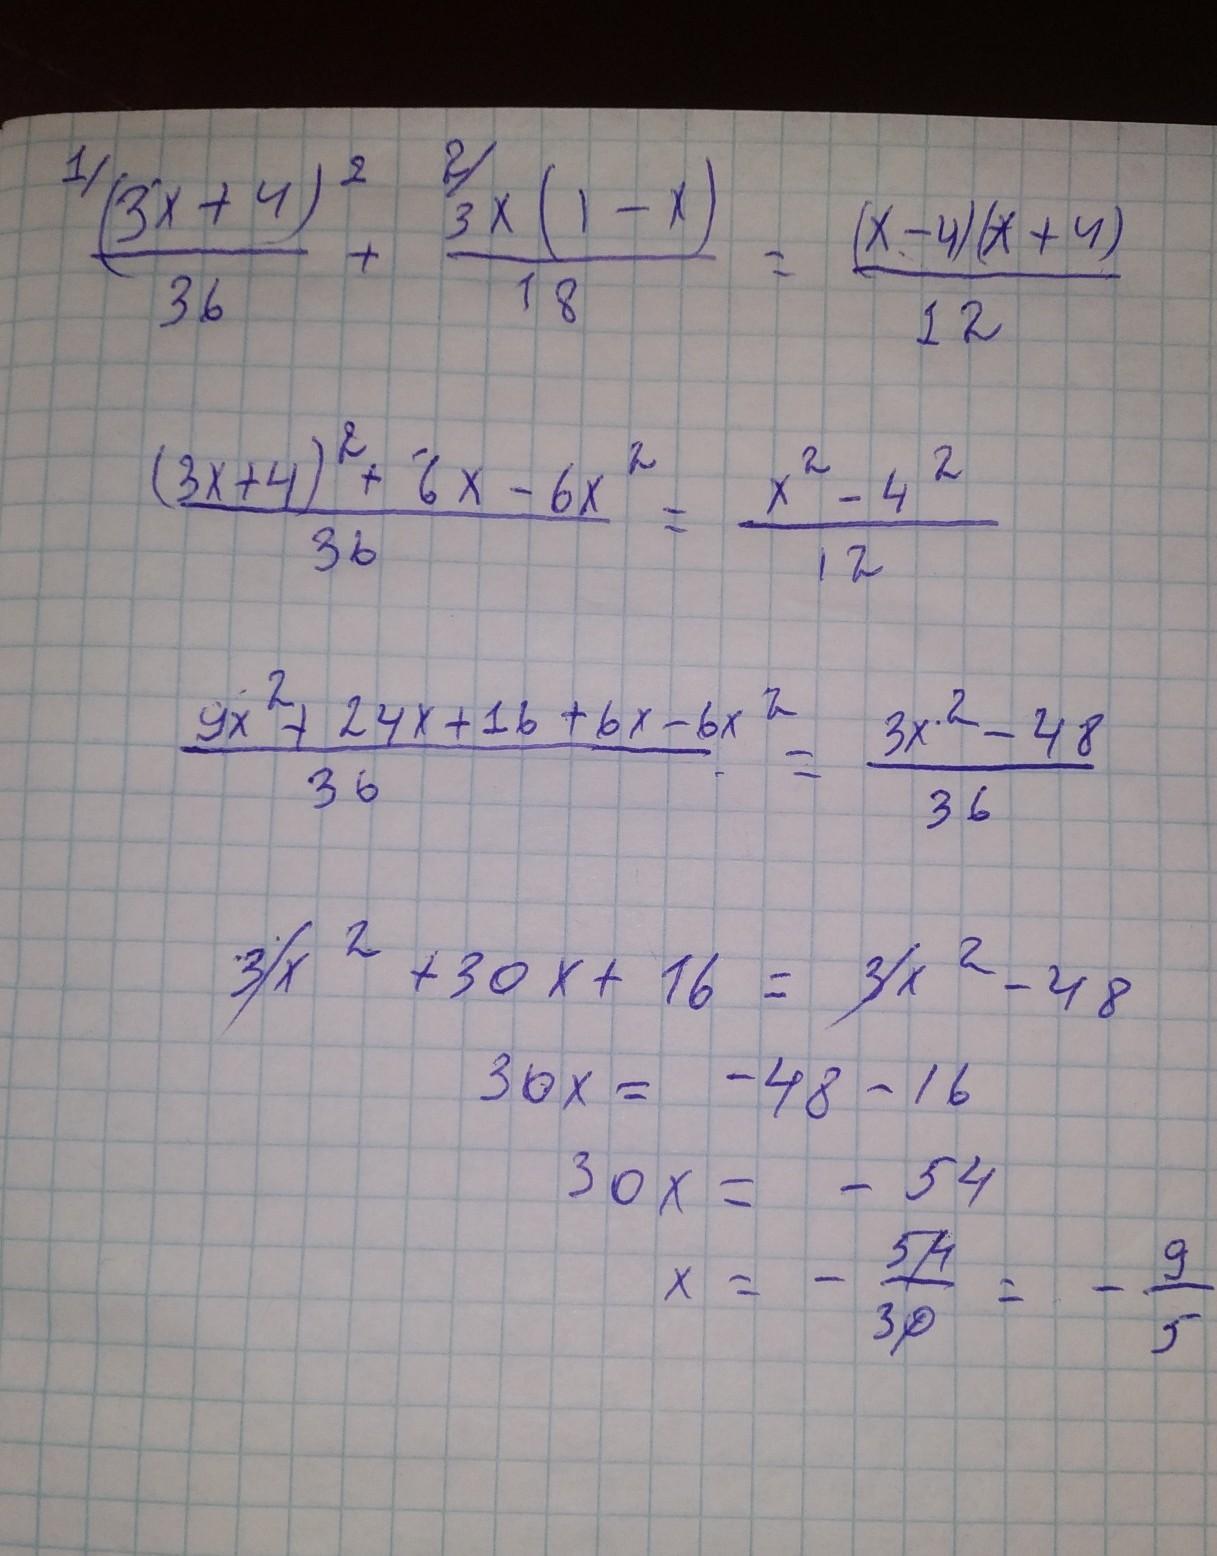 1/ (3x+4)² / 36 + 2/ 3x(1-x) / 18 = (x-4)(x+4) / 12
(3x+4)² + 6x - 6x² / 36 = x² - 4² / 12
9x² + 24x + 16 + 6x - 6x² / 36 = 3x² - 48 / 36
3x² + 30x + 16 = 3x² - 48
30x = -48 - 16
30x = - 54
x = - 54/30 = - 9/5